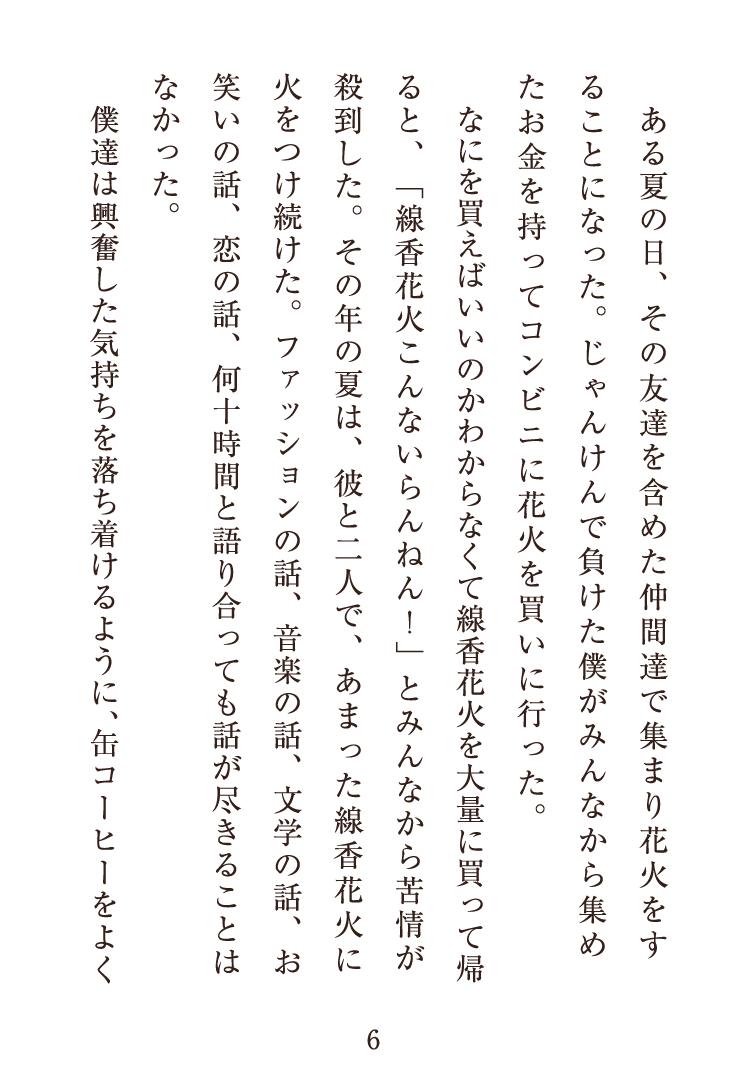 ある夏の日、その友達を含めた仲間達で集まり花火をす
ることになった。じゃんけんで負けた僕がみんなから集め
たお金を持ってコンビニに花火を買いに行った。
　なにを買えばいいのかわからなくて線香花火を大量に買って帰
ると、「線香花火こんないらんねん！」とみんなから苦情が
殺到した。その年の夏は、彼と二人で、あまった線香花火に
火をつけ続けた。ファッションの話、音楽の話、文学の話、お
笑いの話、恋の話、何十時間と語り合っても話が尽きることは
なかった。
　僕達は興奮した気持ちを落ち着けるように、缶コーヒーをよく
6